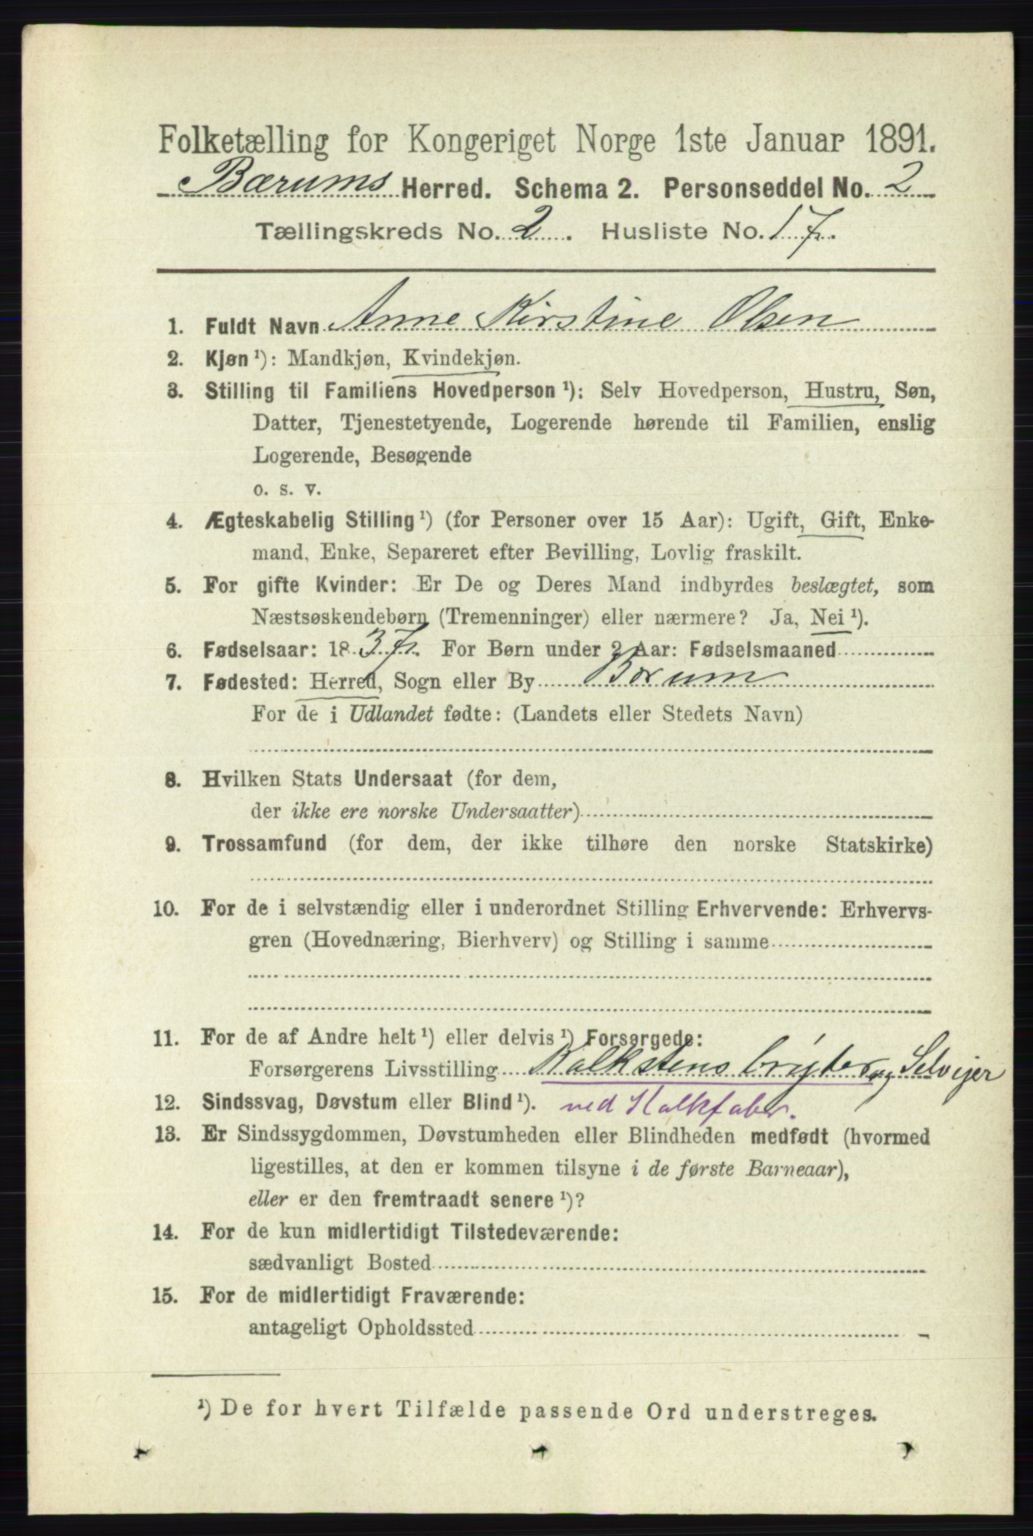 Folketælling for Kongeriget Norge 1ste Januar 1891.
Bærums Herred. Schema 2. Personseddel No. 2
Tællingskreds No. 2. Husliste No. 17.
1. Fuldt Navn Anne Kirstine Olsen
2. Kjøn ¹): Mandkjøn, Kvindekjøn.
3. Stilling til Familiens Hovedperson ¹): Selv Hovedperson, Hustru, Søn,
Datter, Tjenestetyende, Logerende hørende til Familien, enslig
Logerende, Besøgende
o. s. v.
4. Ægteskabelig Stilling ¹) (for Personer over 15 Aar): Ugift, Gift, Enke-
mand, Enke, Separeret efter Bevilling, Lovlig fraskilt.
5. For gifte Kvinder: Er De og Deres Mand indbyrdes beslægtet, som
Næstsøskendebørn (Tremenninger) eller nærmere? Ja, Nei ¹).
6. Fødselsaar: 1837. For Børn under 2 Aar: Fødselsmaaned
7. Fødested: Herred, Sogn eller By Bærum
For de i Udlandet fødte: (Landets eller Stedets Navn)
8. Hvilken Stats Undersaat (for dem,
der ikke ere norske Undersaatter)
9. Trossamfund (for dem, der ikke tilhøre den norske Statskirke)
10. For de i selvstændig eller i underordnet Stilling Erhvervende: Erhvervs-
gren (Hovednæring, Bierhverv) og Stilling i samme
11. For de af Andre helt ¹) eller delvis ¹) Forsørgede:
Forsørgerens Livsstilling Kalkstensbryder og Selvejer
12. Sindssvag, Døvstum eller Blind ¹). ved Kalkfabr.
13. Er Sindssygdommen, Døvstumheden eller Blindheden medfødt (hvormed
ligestilles, at den er kommen tilsyne i de første Barneaar),
eller er den fremtraadt senere ¹)?
14. For de kun midlertidigt Tilstedeværende:
sædvanligt Bosted
15. For de midlertidigt Fraværende:
antageligt Opholdssted
¹) De for hvert Tilfælde passende Ord understreges.